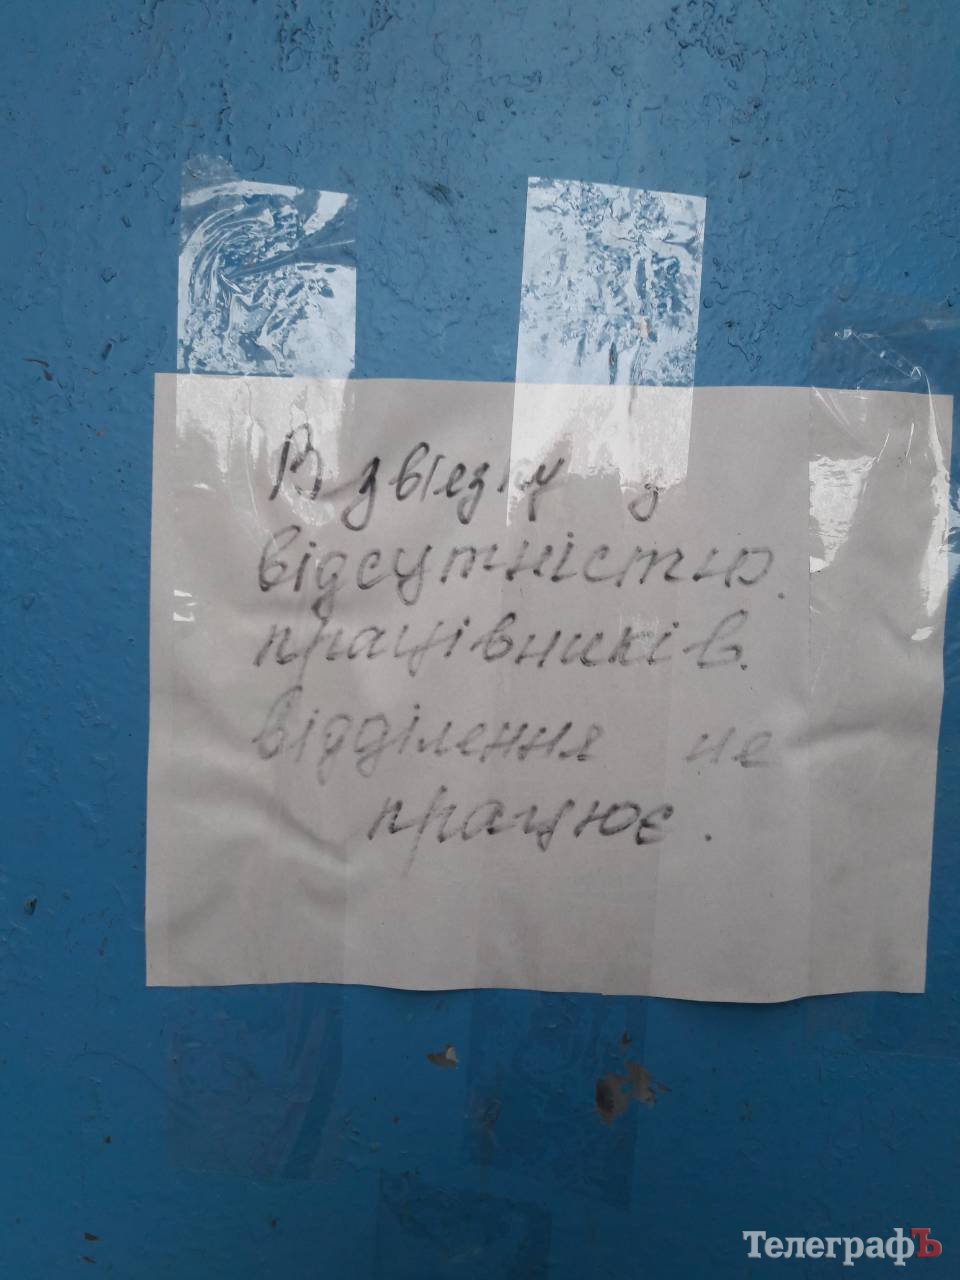 В звіезку з
відсутністю
працівників
відділення не
працює.
ТелеграфЪ